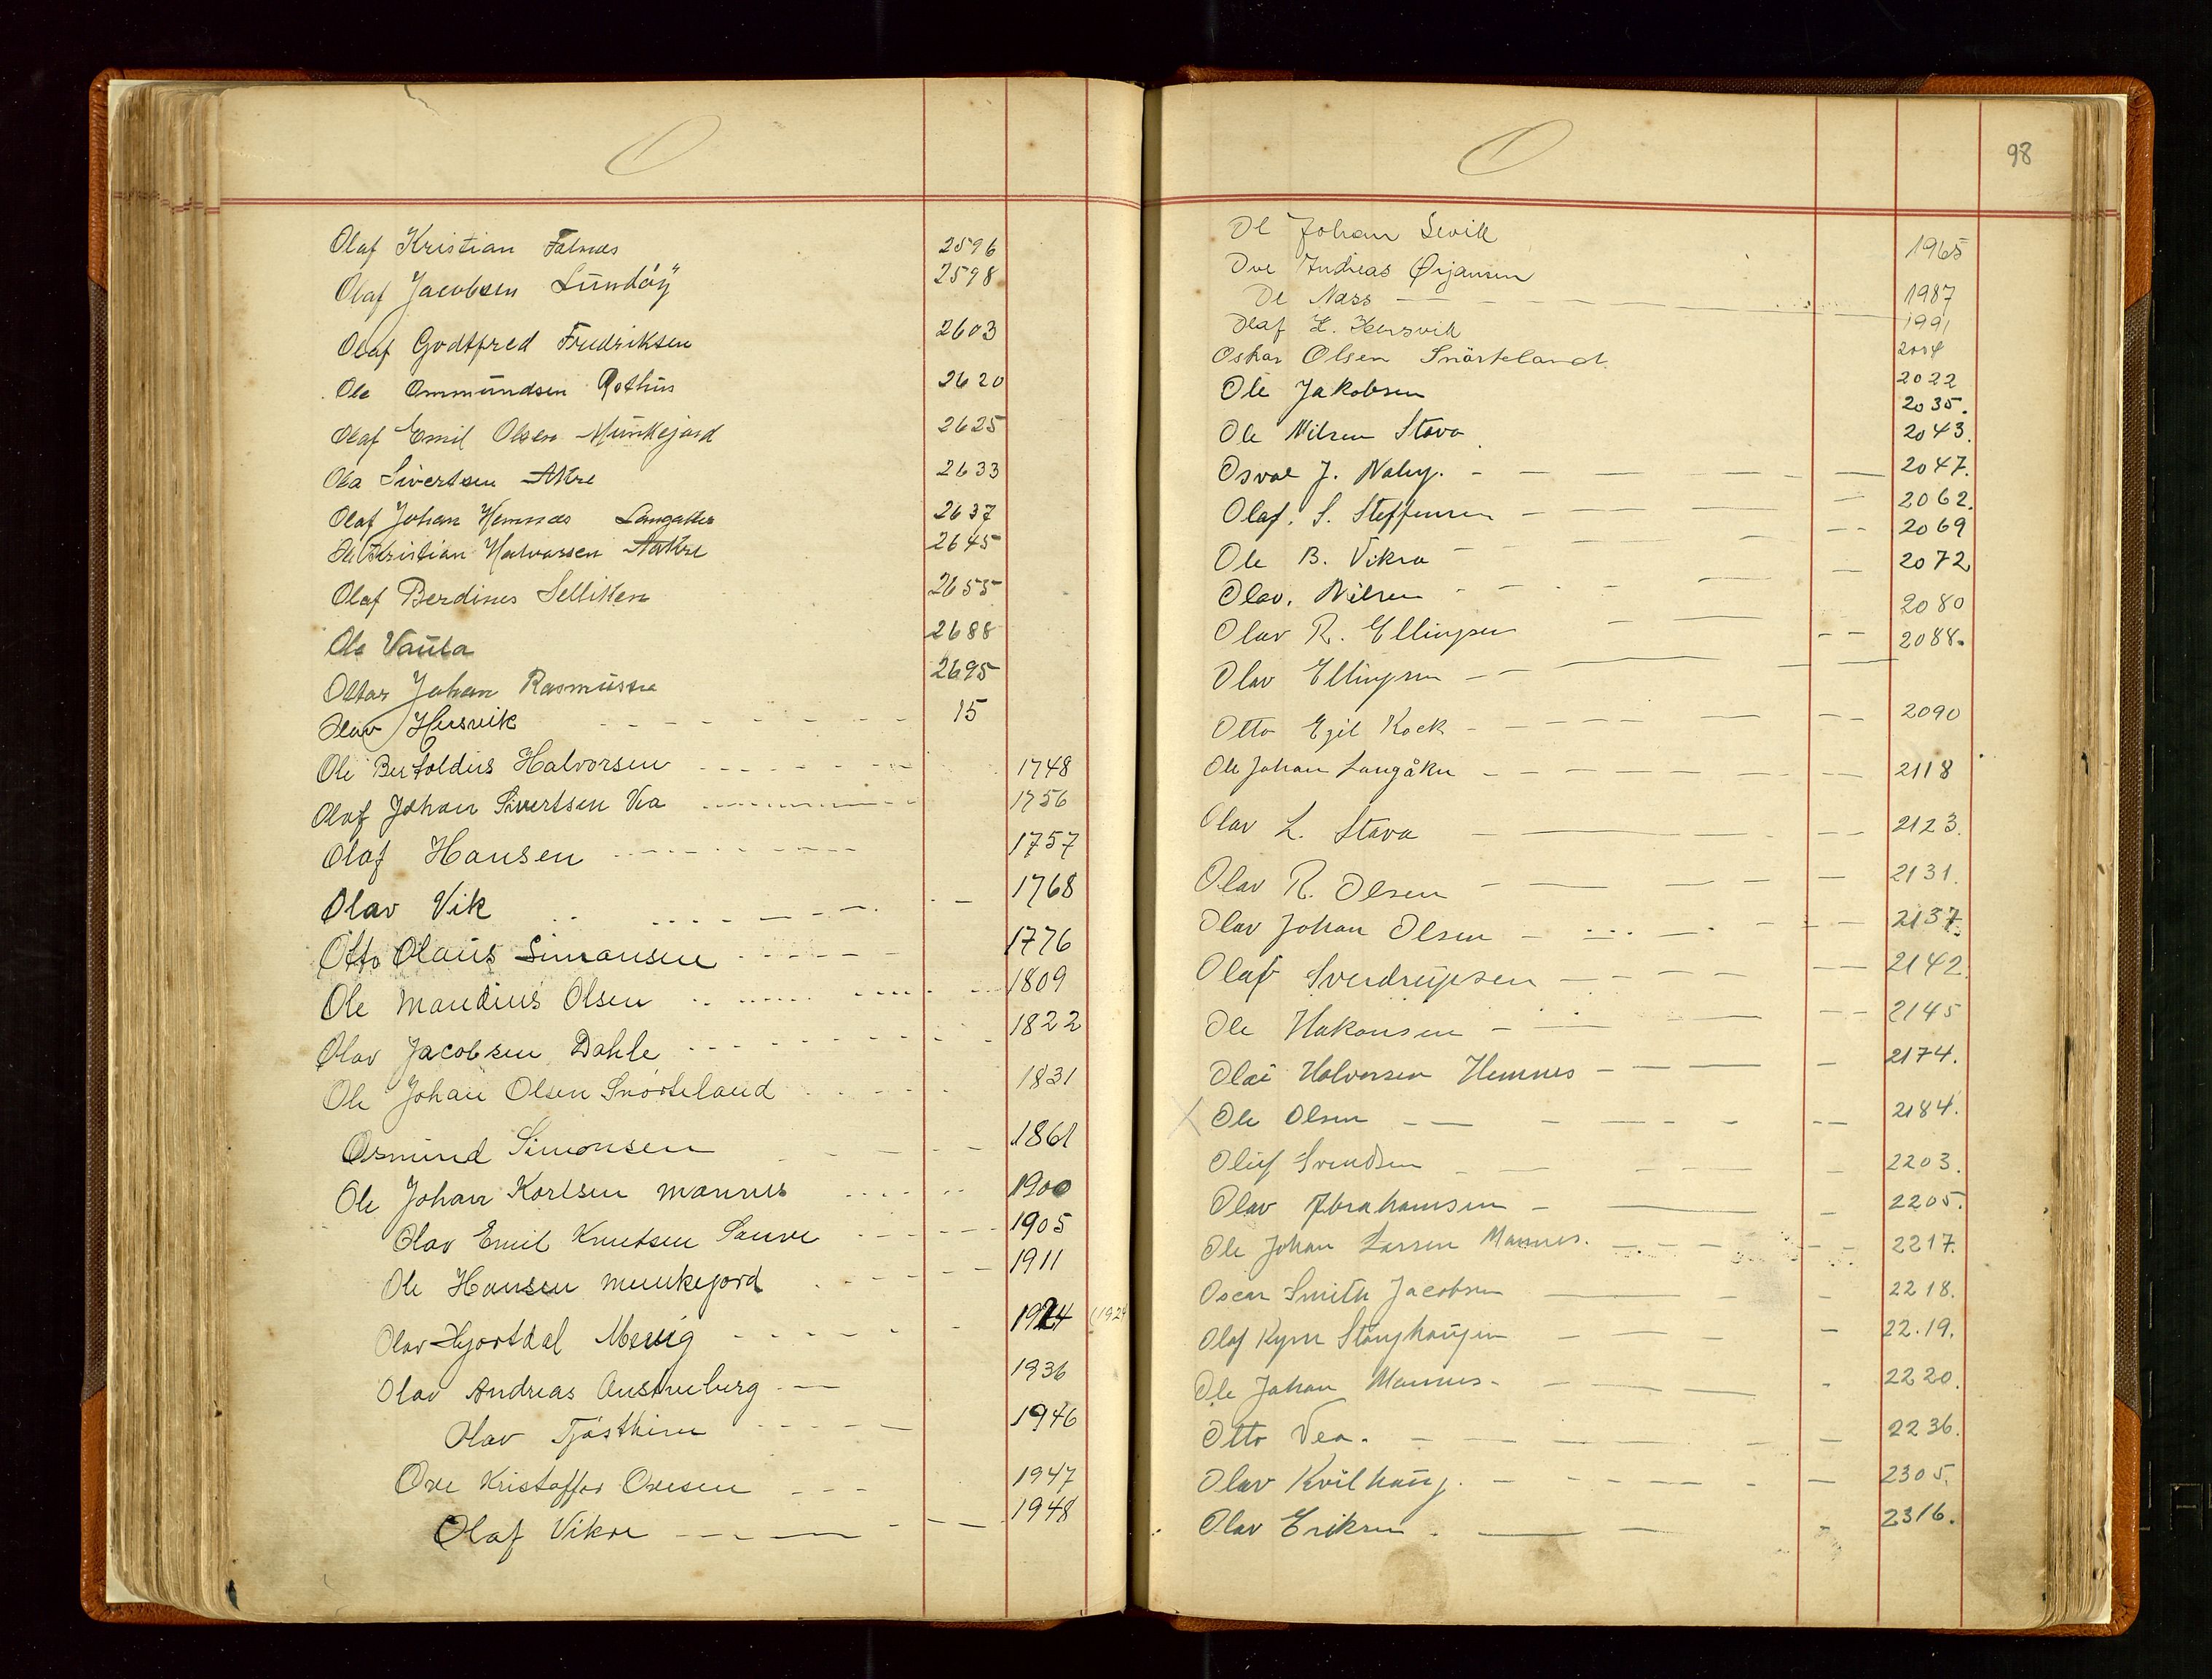 O
Olaf Kristian Falnæs 2596
Olaf Jacobsen Lundöy 2598
Olaf Godtfred Fredriksen 2603
Ole Ommundsen Rothus 2620
Olaf Emil Olsen Munkejord 2625
Ola Sivertsen Akre 2633
Olaf Johan Hemnæs Langaker 2637
Ole Kristian Halvorsen Aakre 2645
Olaf Berdines Selliken 2655
Ole Vaula 2688
Ottar Johan Rasmussen 2695
Olav Hersvik 15
Ole Bertoldus Halvorsen 1748
Olaf Johan Sivertsen Vea 1756
Olaf Hansen 1757
Olav Vik 1768
Otto Olaus Simonsen 1776
Ole Mandius Olsen 1809
Olav Jacobsen Dahle 1822
Ole Johan Olsen Snörteland 1831
Osmund Simonsen 1861
Ole Johan Karlsen Mannes 1900
Olav Emil Knutsen Sauve 1905
Ole Hansen Munkejord 1911
Olav Hjortdal 1924 (1924
Olav Andreas Austreberg 1936
Olav Tjöstheim 1946
Ove Kristoffer Ovesen 1947
Olaf Vikre 1948
O
98
Ol Johan Sevik 1965
Ove Andreas Ørjansen
Ol Næss 1987
Olaf H. Hersvik 1991
Oskar Olsen Snörteland 2004
Ole Jakobsen 2022
2035.
Ole Nilsen Stava 2043.
Osval J. 2047.
Olaf. S. Steffensen 2062.
2069
Ole B. Vikra 2072
Olav. Nilsen
Olav R. Ellingsen 2080
Olav Ellingsen 2088.
Otto Egil Kock 2090
Ole Johan Langåker 2118
Olav L. Stava 2123.
Olav R. Olsen 2131.
Olav Johan Olsen 2137.
Olaf Sverdrupsen 2142.
Ole Hakonsen 2145
Olai Halvorsen Hemnes 2174.
X Ole Olsen 2184.
Oluf Svendsen 2203.
Olav Abrahamsen 2205.
Ole Johan Larsen Mannes. 2217.
Oscar Smith Jacobsen 2218.
Olaf Stonghaugen 22.19.
Ole Johan Mannes. 2220.
Otto Vea. 2236.
Olav Kvilhaug. 2305.
Olav Eriksen. 2316.